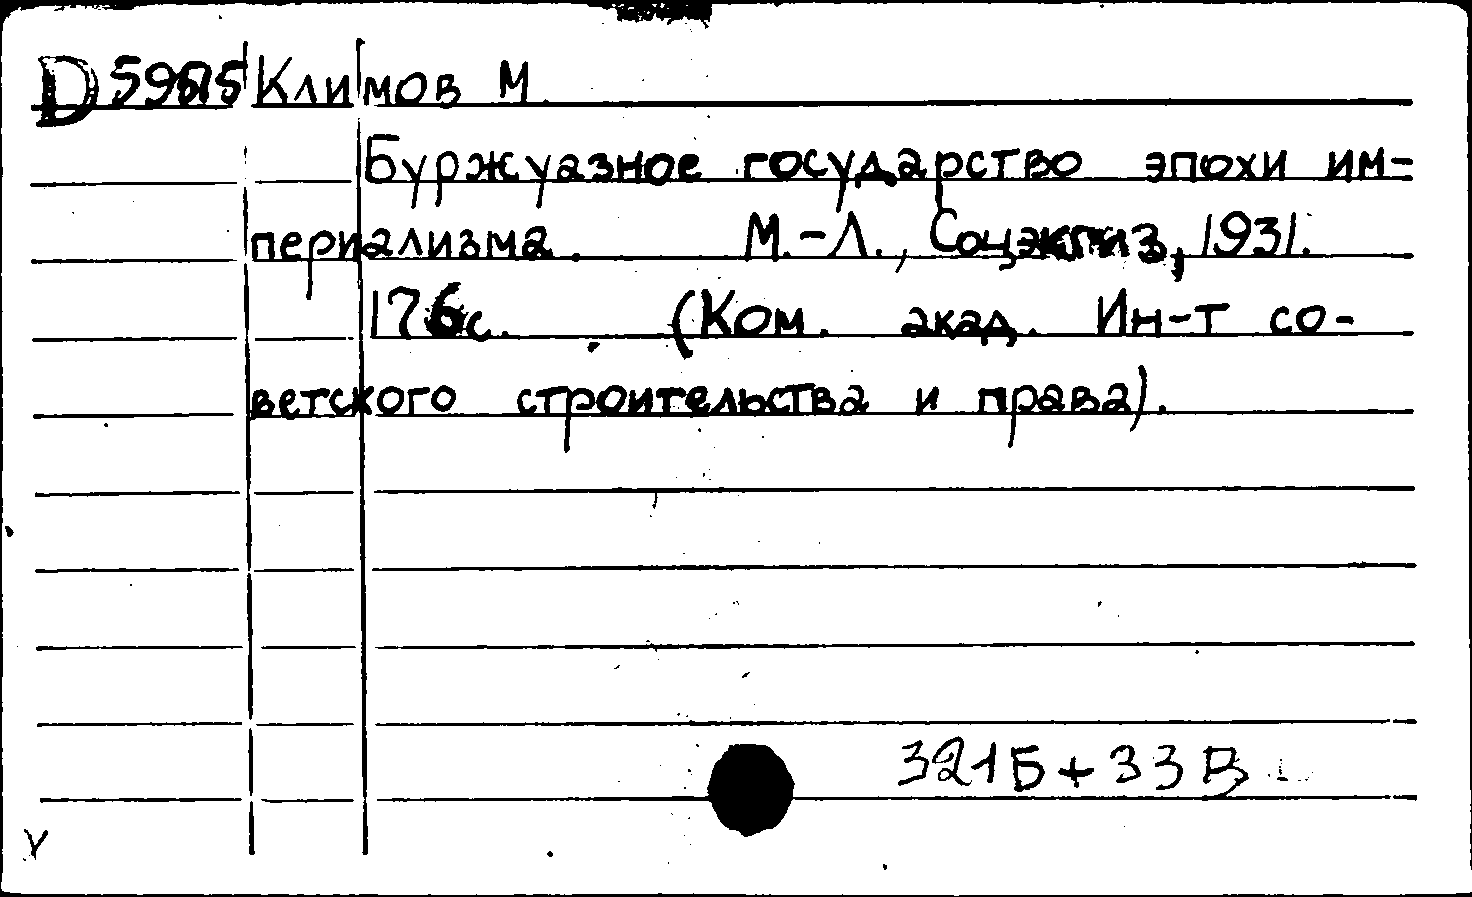 Климов М.
Буржуазное государство эпохи им-
периализма. М.-Л., Соцэкгиз, 1931.
176с. (Ком. акад. Ин-т со-
ветского строительства и права).
321Б+33В